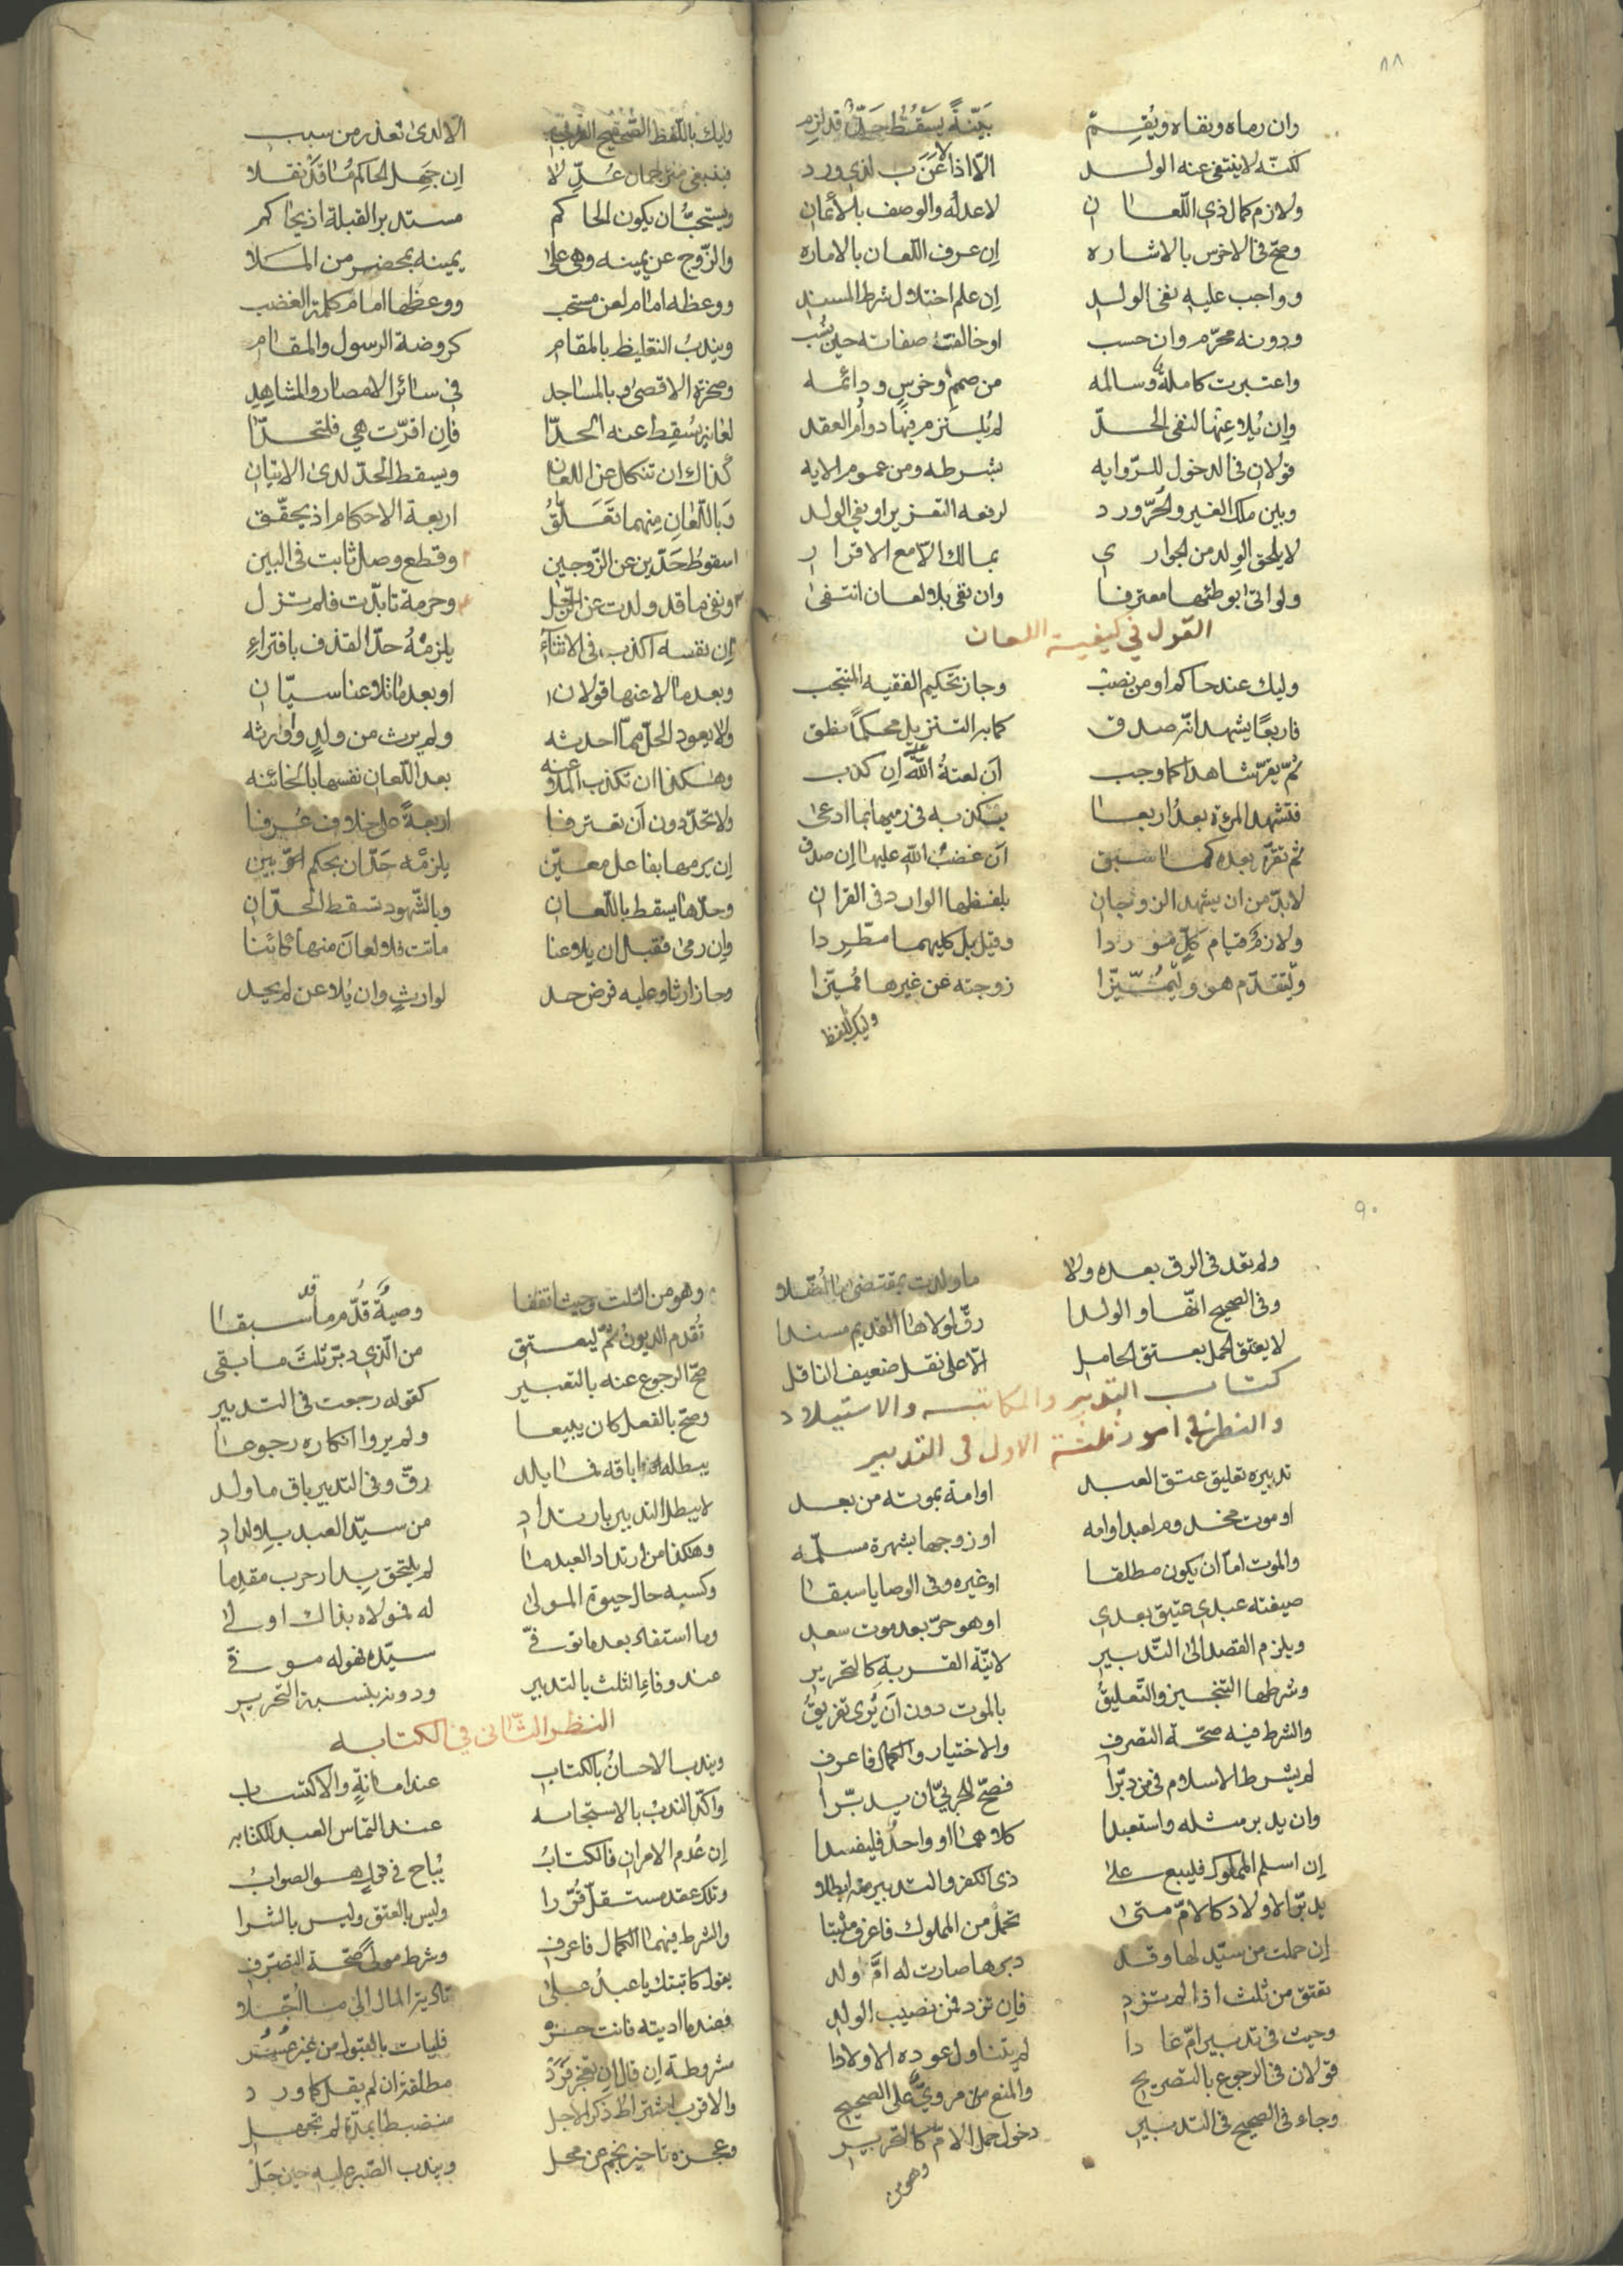 ٨٨
وان رماه ونفاه ويُقِم بَيّنةً يسقُط حَدٌّ قد لزم
لكنّه لا ينتفى عنه الولد الّا اذا لاعَنَ لذى ورد
ولازم كمال ذى اللّعان لا عدله والوصف بالأيمان
وصحّ فى الاخرس بالاشاره إن عرف اللّعان بالاماره
وواجب عليه نفى الولد إن علم اختلال شرط المسند
ودونه محرّم وان حسب او خالفت صفاته حين نُسب
واعتبرت كاملة وسالمه من صمم وخرس ودائمه
وإن يُلاعنها لنفى الحدّ لم يُلتزم فيها دوام العقد
قولان فى الدخول للرّوايه بشرطه ومن عموم الايه
وبين ملك الغير والحرّ ورد لرفعه التعزير او نفى الولد
لا يلحق الولد من الجوارى بمالك الّا مع الاقرار
ولو اتى ابو طئها معترفا وان نفى بلا لعان انتفى
القول فى كيفية اللعان
وليك عند حاكم او من نصب وجاز تحكيم الفقيه المنتجب
فاربعًا يشهد انّه صدق كما به التنزيل محكمًا نطق
ثمّ يقرّ شاهدا كما وجب أن لعنةُ الله عليه إن كذب
فتشهد المرءة بعدُ اربعا بكذبه فى رميها بما ادعى
ثم تقرّ بعده كما سبق أن غضبُ الله عليها إن صدق
لا بدّ من ان يشهد الزوجان بلفظها الوارد فى القران
ولازم قيام كلّ موردا وقيل بل كليهما مطّردا
وليتقدّم هو وليُميّزا زوجته عن غيرها مُميّزا
وليك باللفظ
وليك باللّفظ الصّحيح العربى الّا لدى تعذر من سبب
فينبغى مترجمان عُدّلا إن جهل الحاكم ما قد نقلا
ويستحبُّ ان يكون الحاكم مستدبر القبلة اذ يحاكم
والزّوج عن يمينه وهى على يمينه بمحضر من الملا
ووعظه امام لعن مستحب ووعظها امام كلمة الغضب
ويندبُ التغليظ بالمقام كروضة الرسول والمقام
وصخرة الاقصى وبالمساجد فى سائر الامصار والمشاهد
لعانه يُسقط عنه الحدّا فان اقرّت هى فلتحدّا
كذاك ان تنكل عن اللعان ويسقط الحدّ لدى الاتيان
وباللّعان منهما تعلّقُ اربعة الاحكام اذ يحقّق
سقوطُ حدّين عن الزّوجين وقطع وصل ثابت فى البين
ونفى ما قد ولدت عن الرّجل وحرمة تابّدت فلم تزل
إن نفسه اكذب فى الاثناءِ يلزمهُ حدّ القذف بافتراءِ
وبعد ما لاعنها قولان او بعد ما تلاعنا سيّان
ولا يعود الحلّ مما احدثه ولم يرث من ولدٍ وَوارثه
وهكذا ان تكذب الملاعنه بعد اللّعان نفسها بالخائنه
ولا تحدّ دون أن تعترفا اربعةً على خلاف عُرفا
إن يرمها بفاعل معيّن يلزمه حدّان بحكم البيّن
وحدّها يسقط باللّعان وبالشّهود تسقط الحدّان
وإن رمى فقبل ان يلاعنا ماتت فلا لعان منها كائنا
وجاز ارثا وعليه فرض حد لوارثٍ وان يُلاعن لم يحد
٩٠
ولم تعد فى الرق بعده ولا ما ولدت بمقتضى ما نُقلا
وفى الصحيح انّها والولدا رقّ لمولاها القديم مسندا
لا يعتق الحمل بعتق الحامل الّا على نقل ضعيف الناقل
كتاب التدبير والمكاتبه والاستيلاد
والنظر فى امور ثلثة الاول فى التدبير
تدبيره تعليق عتق العبد او امة بموته من بعد
او موت مخدوم لعبد او امه او زوجها بشهرة مسلّمه
والموت امّا ان يكون مطلقا او غيره وفى الوصايا سبقا
صيغته عبدى عتيق بعدى او هو حرّ بعد موت سعد
ويلزم القصد الى التّدبير لا نيّة القربة كالتحرير
وشرطها التنجيز والتّعليقُ بالموت دون أن يُرى تفريقُ
والشرط فيه صحّة التصرف والاختيار والكمال فاعرف
لم يشرط الاسلام فى من دبّرا فصحّ للحربىّ ان يدبّرا
وان يدبر مثله واستعبدا كلاهما او واحدٌ فليفسدا
إن اسلم المملوك فليبع على ذى الكفر والتدبير منه ابطلا
يدبّر الاولاد كالامّ متى تحمل من المملوك فاعرف مثبتا
إن حملت من سيّد لها وقد دبرها صارت له امَّ ولد
تعتق من ثلث اذا لم تزد فإن تزد فمن نصيب الولد
وحيث فى تدبير امّ عادا لم يتناول عوده الاولادا
قولان فى الرجوع بالتصريح والمنع من مروىّ على الصحيح
وجاء فى الصحيح فى التدبير دخول حمل الامّ كالتحرير
وهو من
وهو من الثلث وحيث اتفقا وصيةٌ قُدّم ما قد سبقا
تُقدم الديونُ ثمّ ليعتق من الّذى دبّر ثلثَ ما بقى
صحّ الرجوع عنه بالتعبير كقوله رجعت فى التدبير
وصحّ بالفعل كان يبيعا ولم يروا انكاره رجوعا
يبطله اباقه فما يلد رقّ وفى التدبير باق ما ولد
لا يبطل التدبير بارتداد من سيّد العبد بلا ولاد
وهكذا من ارتداد العبد ما لم يلتحق بدار حرب مقدما
وكسبه حال حيوة المولى له فمولاه بذاك اولى
وما استفاد بعد ما توفّى سيّده فهو له موفّى
عند وفاء الثلث بالتدبير ودونه بنسبة التحرير
النظر الثّانى فى الكتابه
ويندب الاحسانُ بالكتاب عند امانةٍ والاكتساب
واكّد الندبُ بالاستجابه عند التماس العبد للكتابه
إن عُدم الامران فالكتابُ يُباح فى قولٍ هو الصوابُ
وتلك عقد مستقلّ قُرّرا وليس بالعتق وليس بالشرا
والشرط فيهما الكمال فاعرف وشرط مولىً صحّة التصرّف
يقول كاتبتك يا عبدُ على تادية المال الى ما اُجّلا
فعندما اديته فانت حر فليات بالقبول من غير عُسُر
مشروطة إن قال ان تعجز فردّ مطلقة ان لم يقل كما ورد
والاقرب اشتراط ذكر الاجل منضبطا بمدّة لم تجهل
وعجزه تاخير نجم عن محل ويندب الصّبر عليه حين حَلّ